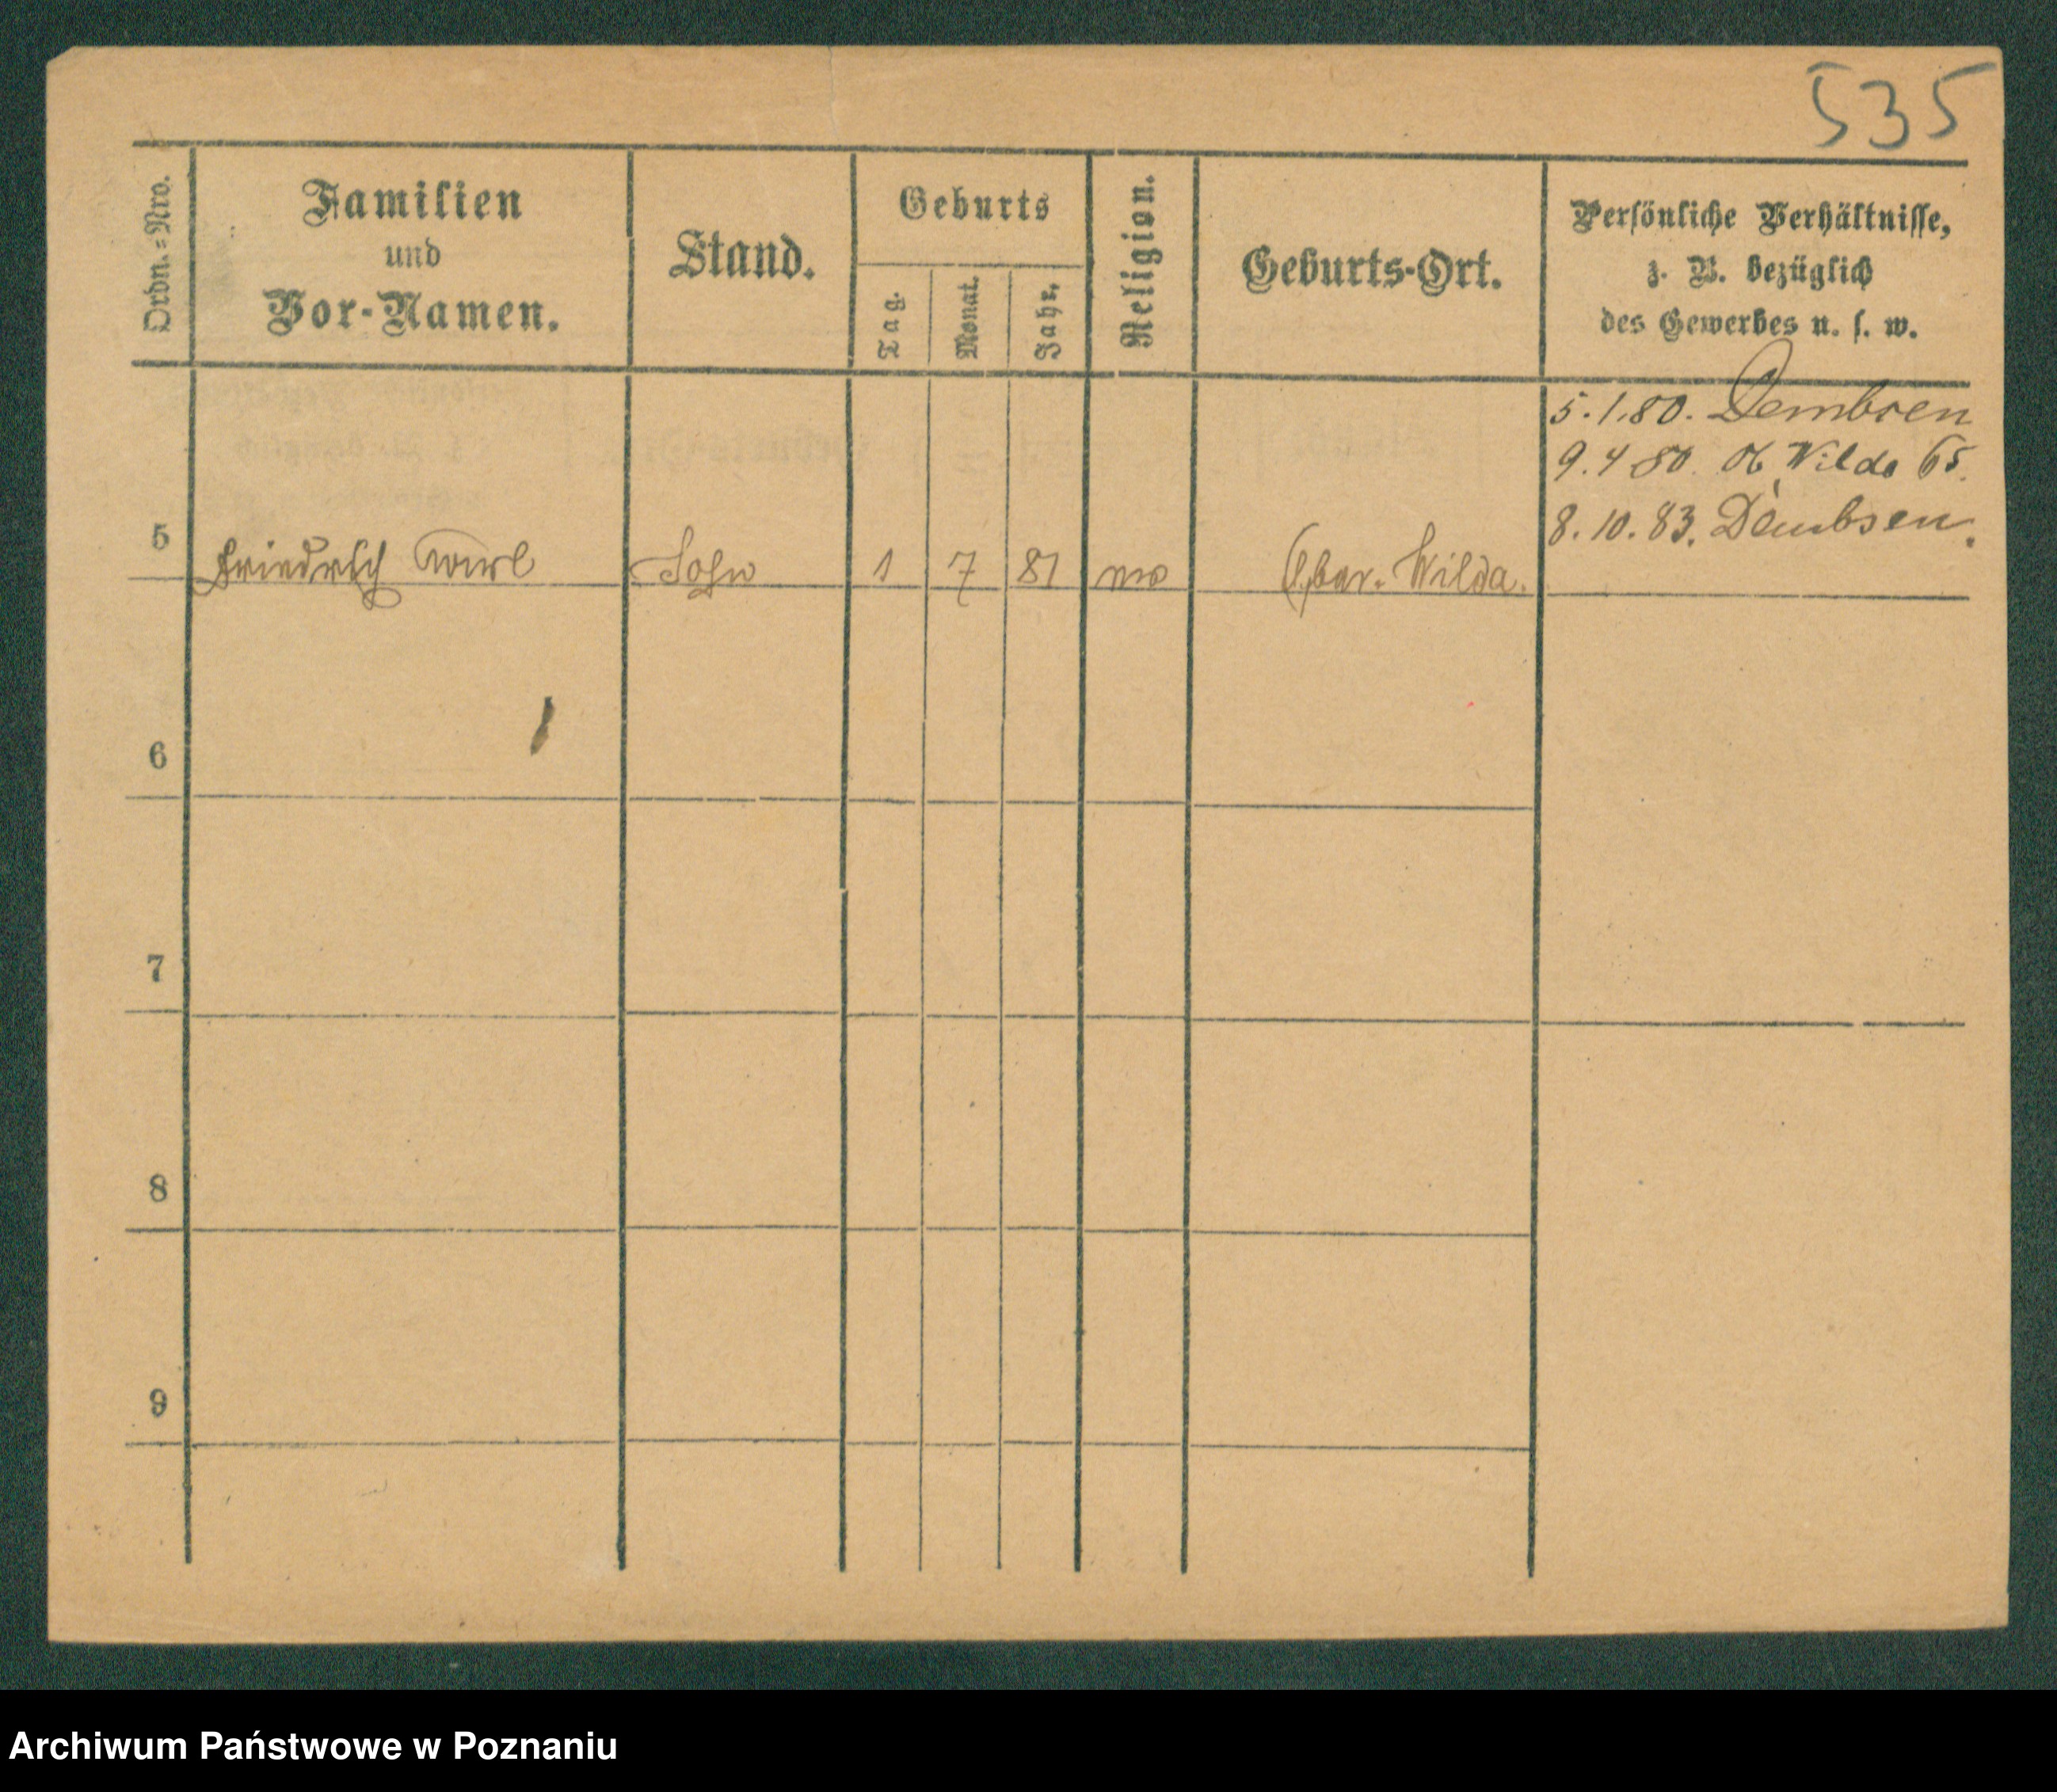 535
Ordn.=Nro.
Familien
und
Vor-Namen.
Stand.
Geburts
Tag.
Monat.
Jahr.
Religion.
Geburts-Ort.
Persönliche Verhältnisse,
z. B. bezüglich
des Gewerbes u. s. w.
5.1.80. Dembsen
9.4 80. Ob Wilda 65.
8.10.83. Dembsen.
5 Friedrich Sohn 1 7 81 Ober. Wilda.
6
7
8
9
Archiwum Państwowe w Poznaniu